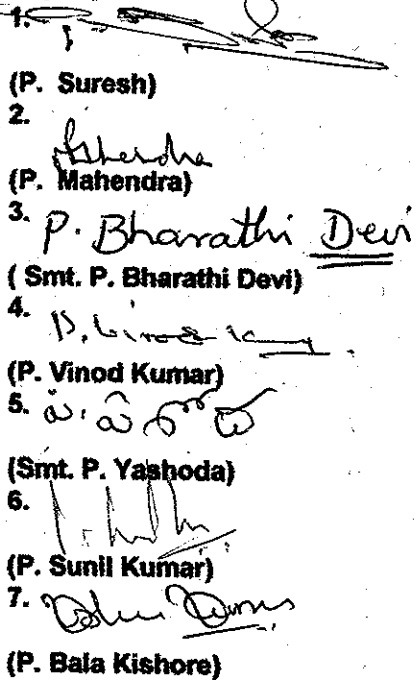 1.
(P. Suresh)
2.
(P. Mahendra)
3. P. Bharathi Devi
( Smt. P. Bharathi Devi)
4. P. Vinod Kumar
(P. Vinod Kumar)
5.
(Smt. P. Yashoda)
6.
(P. Sunil Kumar)
7.
(P. Bala Kishore)